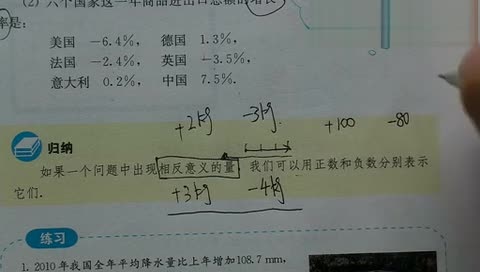 (2) 六个国家这一年商品进出口总额的增长
率是:
美国 -6.4%, 德国 1.3%,
法国 -2.4%, 英国 -3.5%,
意大利 0.2%, 中国 7.5%.
+2kg -3kg +100 -80
归纳
如果一个问题中出现相反意义的量, 我们可以用正数和负数分别表示
它们.
+3kg -4kg
练习
1. 2010年我国全年平均降水量比上年增加108.7 mm,